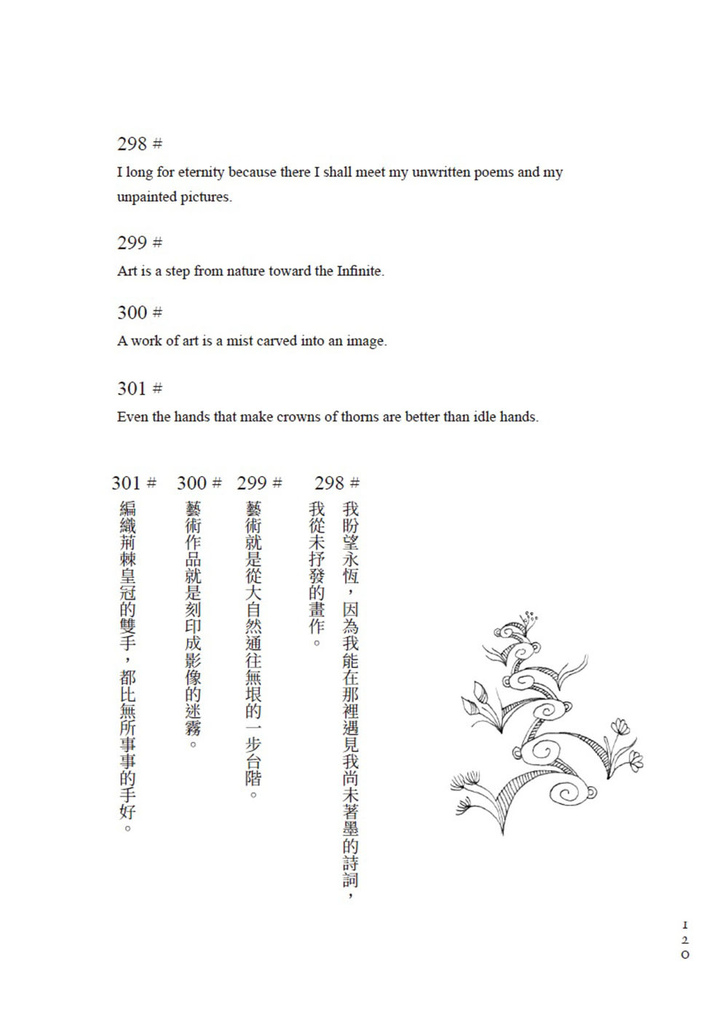 298 #
I long for eternity because there I shall meet my unwritten poems and my
unpainted pictures.
299 #
Art is a step from nature toward the Infinite.
300 #
A work of art is a mist carved into an image.
301 #
Even the hands that make crowns of thorns are better than idle hands.
298 #
我盼望永恆，因為我能在那裡遇見我尚未著墨的詩詞，
我從未抒發的畫作。
299 #
藝術就是從大自然通往無垠的一步台階。
300 #
藝術作品就是刻印成影像的迷霧。
301 #
編織荊棘皇冠的雙手，都比無所事事的手好。
120